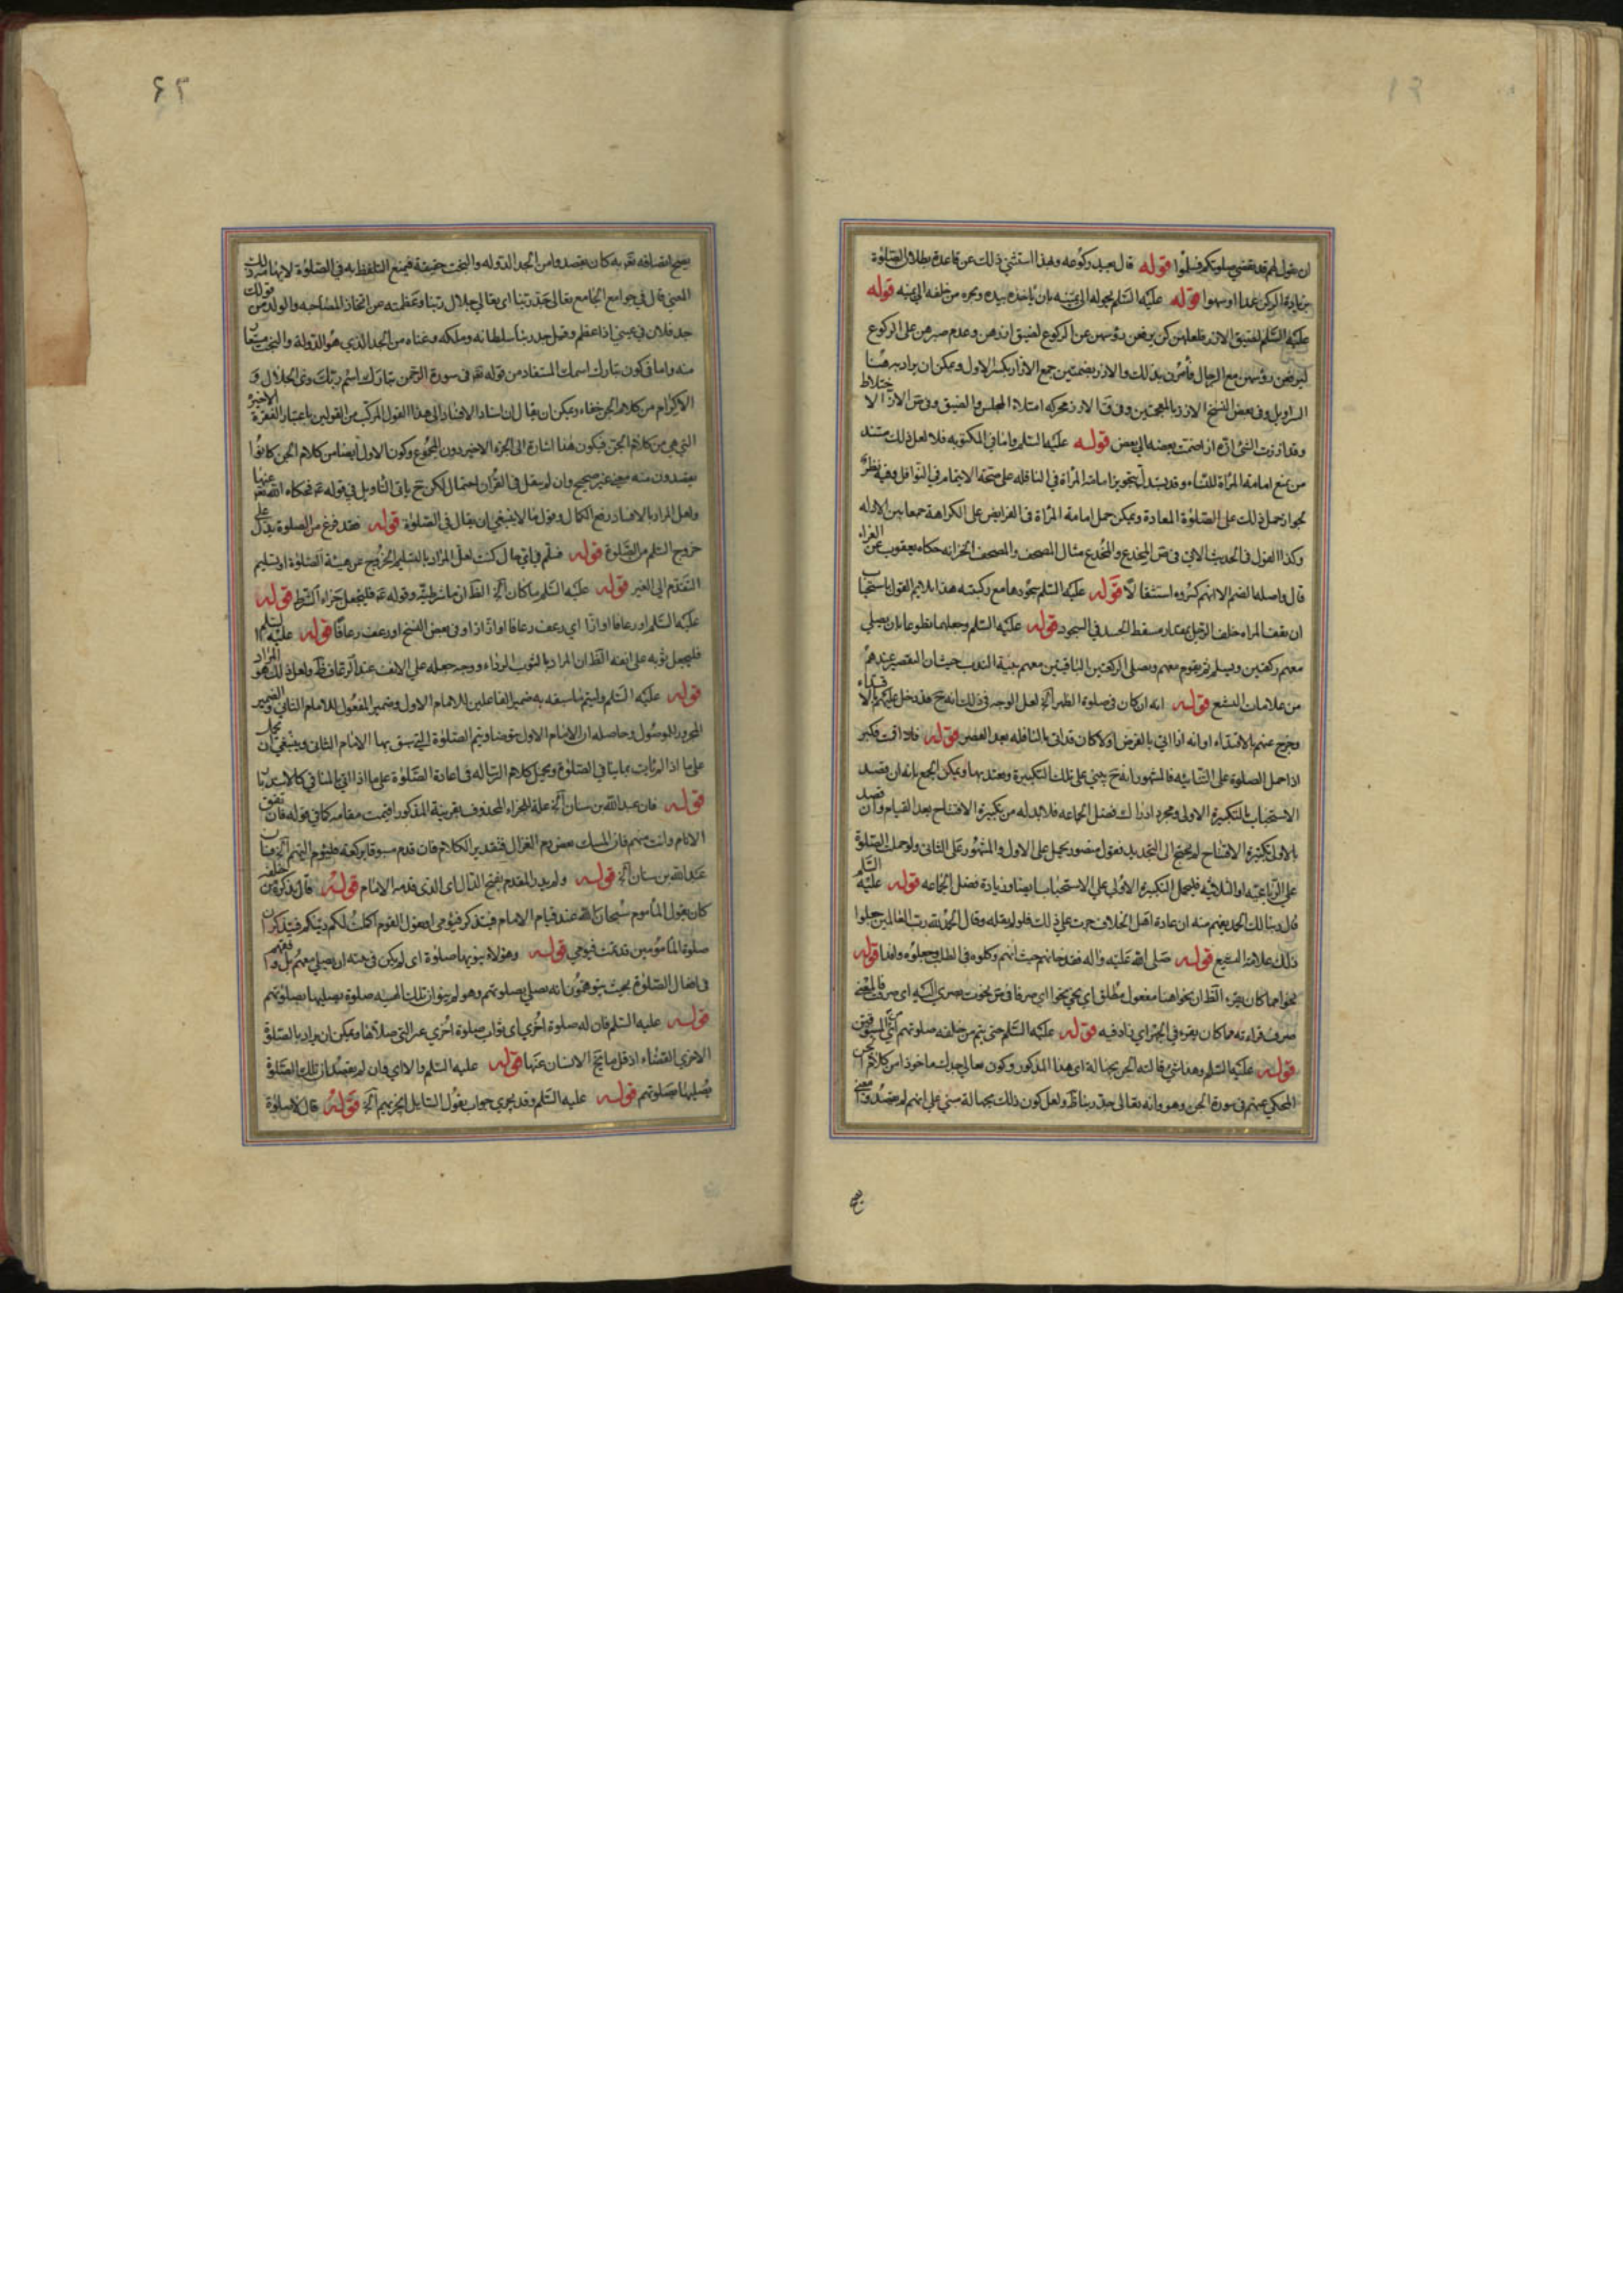 ان يقول لهم قد نقضى صلوتكم فسلموا قوله قال يعيد ركوعه وهذا استثنى ذلك عن قاعدة بطلان الصلوة
بزيادة الركن عمدا او سهوا قوله عليه السلم يحوله الى يمينه بان ياخذه بيده ويجره من خلفه الى يمينه قوله
عليه السلم لضيق الازر فلعلهن كن يرفعن رؤسهن عن الركوع لضيق ازرهن وعدم صبرهن على الركوع
ليرفعن رؤسهن مع الرجال فأمرن بذلك والازر بضمتين جمع الازار بكسر الاول ويمكن ان يراد به هنا
السراويل وفى بعض النسخ الازز بالمعجمتين وفى ق الازز محركة امتلاء المجلس والضيق وفى ص الازز الاختلاط
وقد اززت الشئ ازه ازا ضمت بعضه الى بعض قوله عليه السلم واما فى المكتوبه فلا لعل ذلك مستند
من منع امامة المرأة للنساء وقد يستدل بتجويز امامة المرأة فى النافله على صحة الايتمام فى النوافل وفيه نظر
لجواز حمل ذلك على الصلوة المعادة ويمكن حمل امامة المرأة فى الفرايض على الكراهة جمعا بين الادله
وكذا القول فى الحديث الاتى فى ص المخدع والمخدع مثال المصحف والمصحف الخزانه حكاه يعقوب عن الفراء
قال واصله الضم الا انهم كسروه استثقالا قوله عليه السلم سجودها مع ركبتيه هذا يلايم القول باستحباب
ان يقف المراه خلف الرجل بمقدار مسقط الجسد فى السجود قوله عليه السلم وجعلهما تطوعا بان يصلى
معهم ركعتين ويسلم ثم يقوم معهم ويصلى الركعتين الباقيتين معهم بنية الندب حيث ان التقصير عندهم
من علامات التشيع قوله انه ان كان فى صلوة الظهر آلخ لعل الوجه فى ذلك انه ح قد دخل عليهم بالاقتداء
وخرج عنهم بالاقتداء او انه اذا اتى بالفرض اولا كان قد اتى بالنافله بعد العصر قوله فاذا قمت فكبر
اذا حمل الصلوة على الثنائيه فالمشهور انه ح يبنى على تلك التكبيرة ويعتد بها ويمكن الجمع بانه ان قصد
الاستحباب بالتكبيرة الاولى ومجرد ادراك فضل الجماعه فلا بد له من تكبيرة الافتتاح بعد القيام وان قصد
بالاولى تكبيرة الافتتاح لم يحتج الى التجديد فنقول منصور يحمل على الاول والمشهور على الثانى ولو حملت الصلوة
على الرباعيه او الثلاثيه فليحمل التكبيرة الاولى على الاستحباب ايضا وزيادة فضل الجماعه قوله عليه السلم
قال ربنا لك الحمد يفهم منه ان عادة اهل الخلاف جرت على ذلك فلو لم يقله وقال الحمد لله رب العالمين جعلوا
ذلك علامة التشيع قوله صلى الله عليه واله فقد خانهم حيث انهم وكلوه فى الطلب وجعلوه وافدا قوله
نحوا مما كان يقرء الظ ان نحوا هنا مفعول مطلق اى نحى نحوا اى صرفا فى ص نحوت بصرى اليه اى صرفت فالمعنى
صرف قراءته مما كان يقرء فى الجهر اى زاد فيه قوله عليه السلم حتى يتم من خلفه صلوتهم اى المسبوقين
قوله عليه السلم وهذا شئ قالته الجن بجهالة اى هذا المذكور وكون تعالى جدك ماخوذا من كلام الجن
المحكى عنهم فى سورة الجن وهو وانه تعالى جد ربنا ظ ولعل كون ذلك بجهالة مبنى على انهم لم يقصدوا معنى
يصح اتصافه تعالى به كان يقصدوا من الجد الدوله والبخت حقيقة فيمنع التلفظ به فى الصلوة لانها
المعنى قال فى جوامع الجامع تعالى جد ربنا اى تعالى جلال ربنا وعظمته عن اتخاذ الصاحبه والولد من قولك
جد فلان فى عينى اذا عظم وقيل جد ربنا سلطانه وملكه وغناه من الجد الذى هو الدولة والبخت مستعار
منه واما فى كون تبارك اسمك المستفاد من قوله تعالى فى سورة الرحمن تبارك اسم ربك ذى الجلال و
الاكرام من كلام الجن خفاء ويمكن ان يقال ان اسناد الافساد الى هذا القول المركب من القولين باعتبار الفقرة الاخيرة
التى هى من كلام الجن فيكون هذا اشارة الى الجزء الاخير دون المجموع وكون الاول ايضا من كلام الجن كانوا
يقصدون منه معنى غير صحيح وان لم ينقل فى القرآن احتمال لكن ح يابى التاويل فى قوله فحكاه الله عنها
ولعل المراد بالافساد رفع الكمال وقول ما لا ينبغى ان يقال فى الصلوة قوله فقد فرغ من الصلوة يدل على
خروج السلم من الصلوة قوله فسلم فى اى حال كنت لعل المراد بالتسليم الخروج عن هيئة الصلوة او تسليم
التقدم الى الغير قوله عليه السلم ما كان آلخ الظ ان ما شرطية وقوله فليجعل جزاء الشرط قوله
عليه السلم او رعافا او ازا اى رعف رعافا او از ازا وفى بعض النسخ او رعف رعافا قوله عليه السلم
فليجعل ثوبه على انفه الظ ان المراد بالثوب الرداء ووجه جعله على الانف عند الرعاف ظ ولعل ذلك هو المراد
قوله عليه السلم وليتم ما سبقه به ضمير الفاعلين للامام الاول وضمير المفعول للامام الثانى والضمير
المجرور للموصول وحاصله ان الامام الاول يتوضا ويتم الصلوة التى سبق بها الامام الثانى وينبغى ان يحمل
على ما اذا لم يات بما ينافى الصلوة ويحمل كلام الرساله فى اعادة الصلوة على ما اذا اتى بالمنافى كالاستدبار
قوله فان عبد الله بن سنان آلخ علة للجزاء المحذوف بقرينة المذكور اقيمت مقامه كما فى قوله فان تفق
الانام وانت منهم فان المسك بعض دم الغزال فتقدير الكلام فان قدم مسبوقا بركعة فليؤم اليهم آلخ فان
عبد الله بن سنان آلخ قوله ولم يدر المقدم بفتح الدال اى الذى قدمه الامام قوله قال يذكره من خلفه
كان يقول المأموم سبحان الله عند قيام الامام فيتذكر فيؤمى او يقول القوم اكملت لكم دينكم فيتذكر ان
صلوة المأمومين قد تمت فيومى قوله وهؤلاء ينويها صلوة اى لم يكن فى نيته ان يصلى معهم بل وافقهم
فى افعال الصلوة بحيث يتوهمون انه يصلى بصلوتهم وهو لم ينو ان تلك الهيئه صلوة يصليها بصلوتهم
قوله عليه السلم فان له صلوة اخرى اى ثواب صلوة اخرى غير التى صلاها ويمكن ان يراد بالصلوة
الاخرى القضاء اذ قل ما ينجح الانسان عنها قوله عليه السلم والا اى فان لم يقصد ان تلك الصلوة
يصليها بصلوتهم قوله عليه السلم وقد يجرى جواب بقول السايل يجزيهم آلخ قوله قال لا صلوة